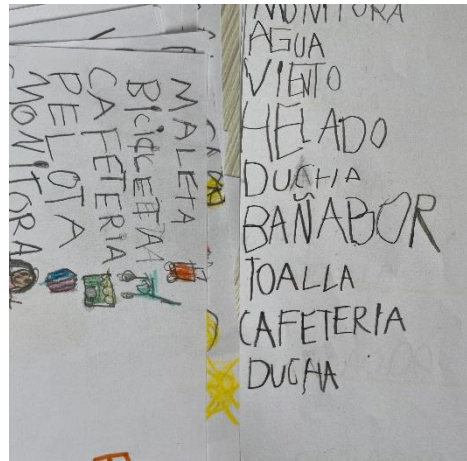 MALETA
BiCiCLETAA
CAFETERIA
PELOTA
MONITORA
MONITORA
AGUA
VIENTO
HELADO
DUCHA
BAÑABOR
TOALLA
CAFETERIA
DUCHA